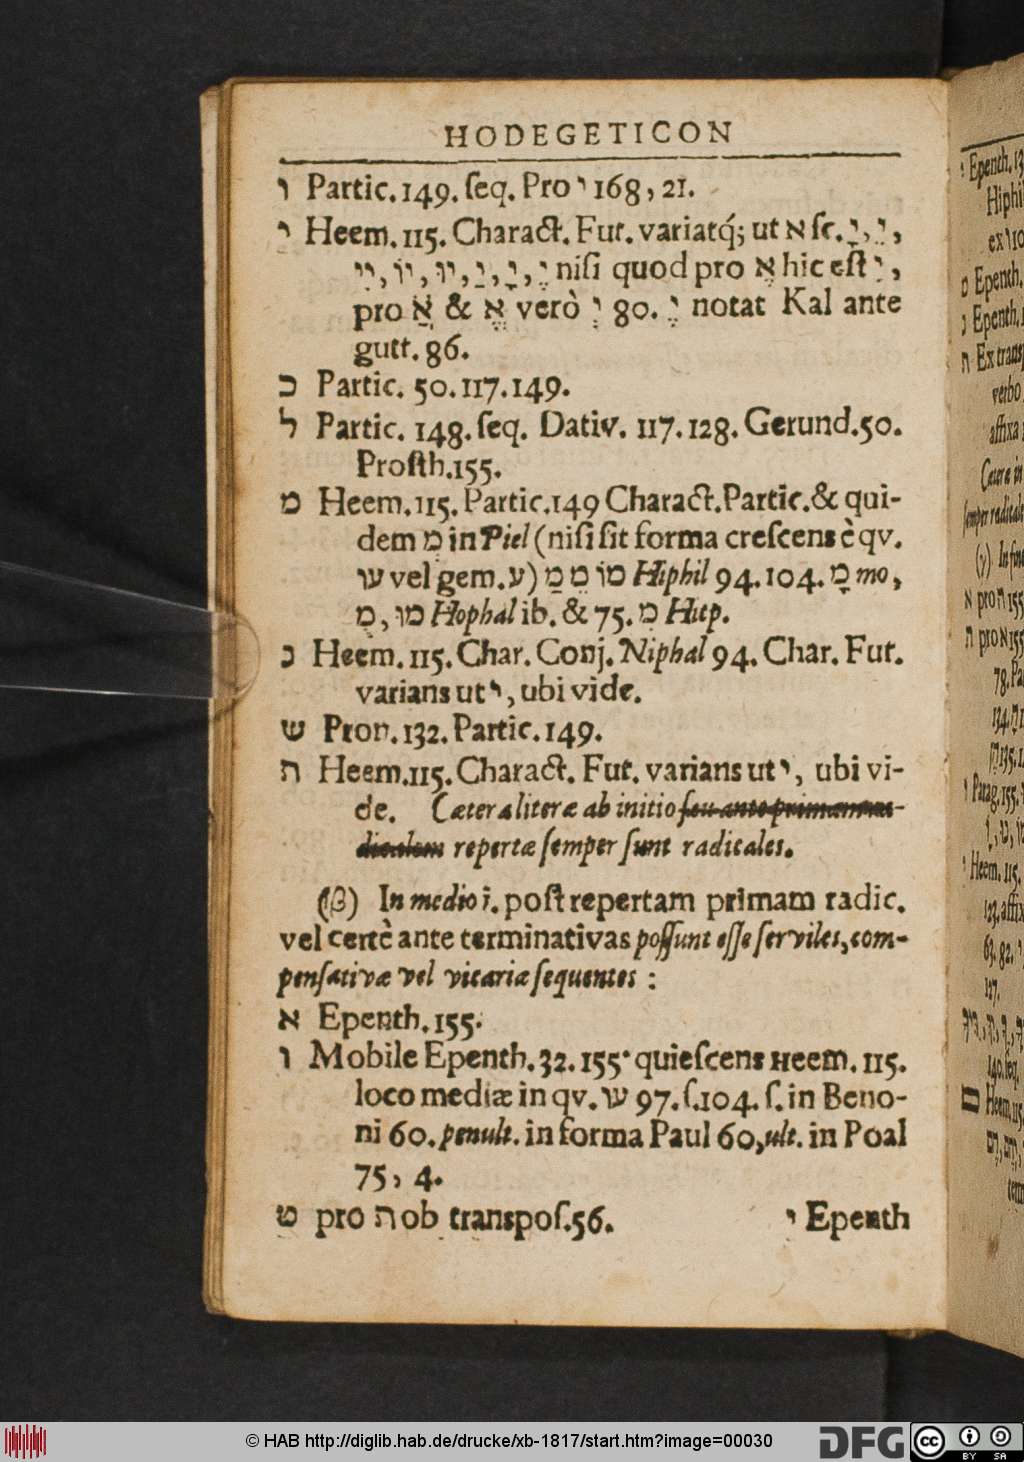 HODEGETICON
ו Partic. 149. ſeq. Pro י 168, 21.
י Heem. 115. Charact. Fut. variatq́; ut א ſc. יָ, יֵ,
יִי, יוֹ, יוּ, יַ, יָ, יֶ niſi quod pro אֶ hic eſt יִ,
pro אֲ & אֱ verò יְ 80. יֶ notat Kal ante
gutt. 86.
כ Partic. 50. 117. 149.
ל Partic. 148. ſeq. Dativ. 117. 128. Gerund. 50.
Proſth. 155.
מ Heem. 115. Partic. 149 Charact. Partic. & qui-
dem מְ in Piel (niſi ſit forma creſcens è qv.
עו vel gem. ע) מוֹ מֵ מַ Hiphil 94. 104. מָ mo,
מוּ, מֻ Hophal ib. & 75. מִ Hitp.
נ Heem. 115. Char. Conj. Niphal 94. Char. Fut.
varians ut י, ubi vide.
ש Pron. 132. Partic. 149.
ת Heem. 115. Charact. Fut. varians ut י, ubi vi-
de. Cæteræ literæ ab initio ſeu ante primam ra-
dicalem repertæ ſemper ſunt radicales.
(β) In medio i. poſt repertam primam radic.
vel certè ante terminativas poſſunt eſſe ſerviles, com-
penſativæ vel vicariæ ſequentes:
א Epenth. 155.
ו Mobile Epenth. 32. 155. quieſcens Heem. 115.
loco mediæ in qv. עו 97. ſ. 104. ſ. in Beno-
ni 60. penult. in forma Paul 60, ult. in Poal
75, 4.
ט pro ת ob transpoſ. 56.
י Epenth
© HAB http://diglib.hab.de/drucke/xb-1817/start.htm?image=00030
DFG
cc
BY SA